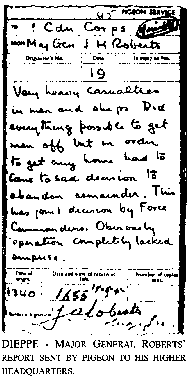 PIGEON SERVICE
TO: 1 Cdn Corps
FROM Maj Gen J H Roberts
Originator's No. Date In reply to No.
19
Very heavy casualties
in men and ships. Did
everything possible to get
men off but in order
to get any home had to
come to sad decision to
abandon remainder. This
was joint decision by Force
Commanders. Obviously
operation completely lacked
surprise.
1340
1655
DIEPPE - MAJOR GENERAL ROBERTS'
REPORT SENT BY PIGEON TO HIS HIGHER
HEADQUARTERS.